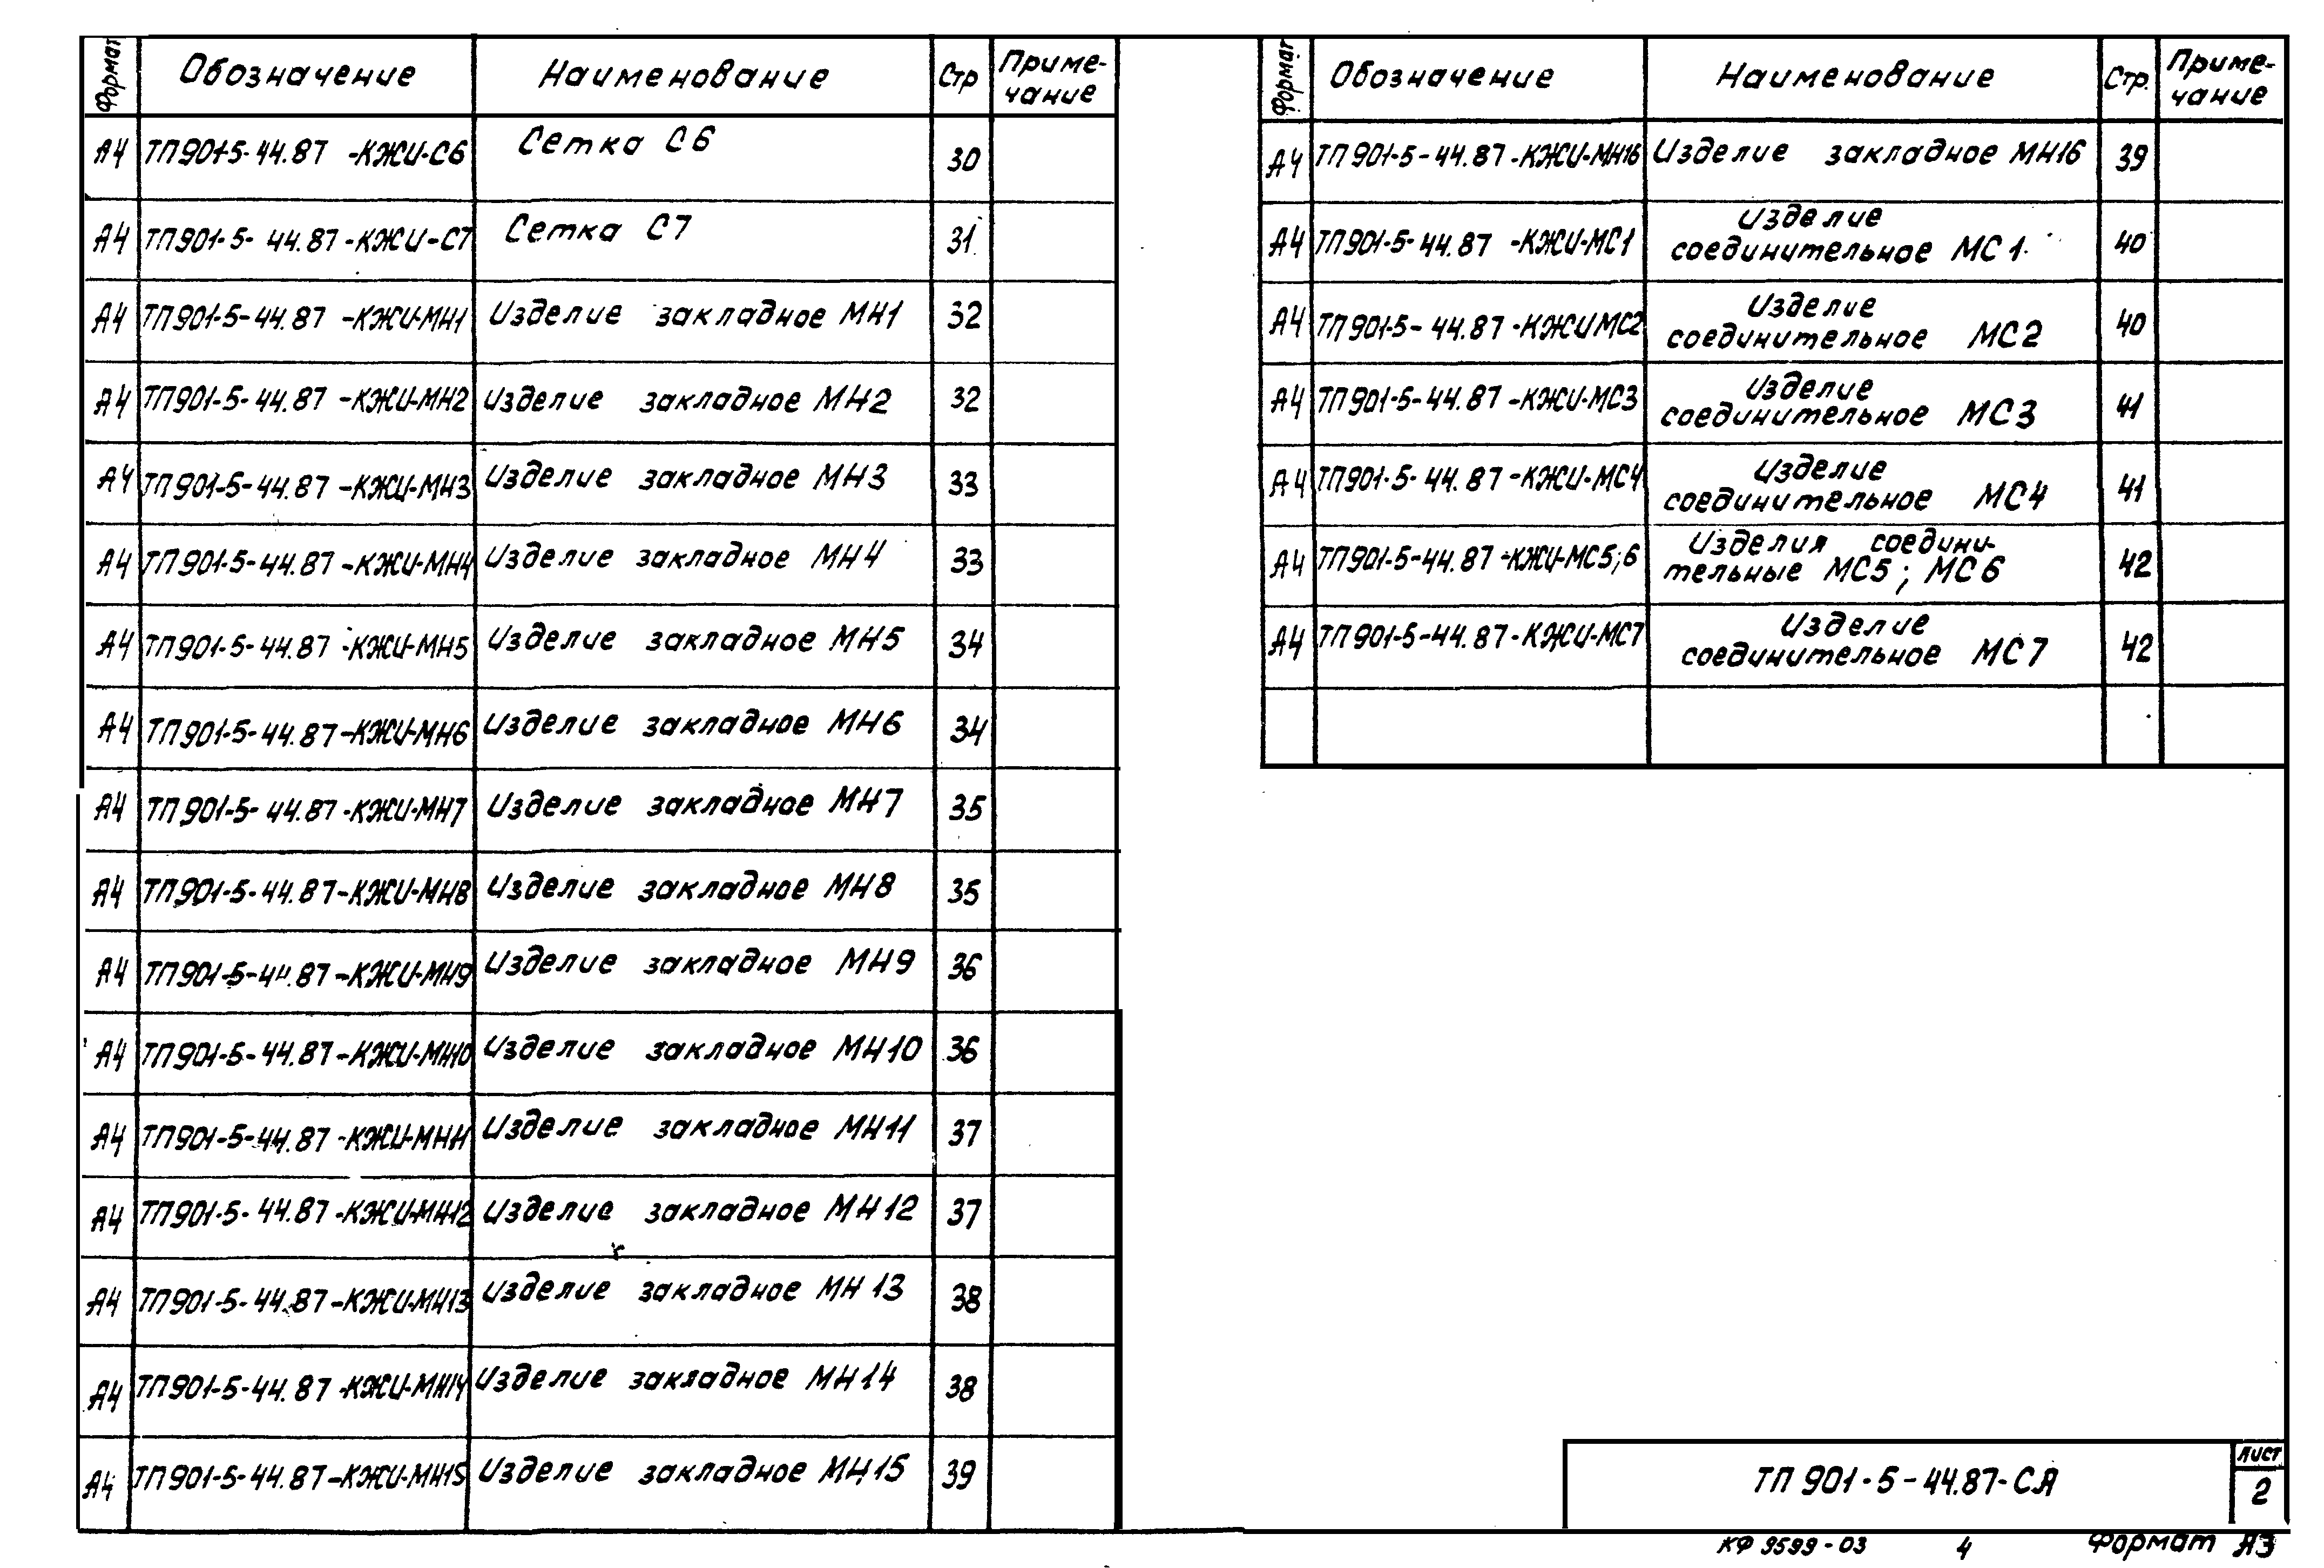 Формат Обозначение Наименование Стр Приме-
чание
А4 ТП901-5-44.87 -КЖИ-С6 Сетка С6 30
А4 ТП901-5-44.87-КЖИ-С7 Сетка С7 31
А4 ТП901-5-44.87 -КЖИ-МН1 Изделие закладное МН1 32
А4 ТП901-5-44.87 -КЖИ-МН2 Изделие закладное МН2 32
А4 ТП901-5-44.87 -КЖИ-МН3 Изделие закладное МН3 33
А4 ТП901-5-44.87 -КЖИ-МН4 Изделие закладное МН4 33
А4 ТП901-5-44.87 -КЖИ-МН5 Изделие закладное МН5 34
А4 ТП901-5-44.87-КЖИ-МН6 Изделие закладное МН6 34
А4 ТП901-5-44.87 -КЖИ-МН7 Изделие закладное МН7 35
А4 ТП901-5-44.87-КЖИ-МН8 Изделие закладное МН8 35
А4 ТП901-5-44.87-КЖИ-МН9 Изделие закладное МН9 36
А4 ТП901-5-44.87-КЖИ-МН10 Изделие закладное МН10 36
А4 ТП901-5-44.87 -КЖИ-МН11 Изделие закладное МН11 37
А4 ТП901-5-44.87 -КЖИ-МН12 Изделие закладное МН12 37
А4 ТП901-5-44.87-КЖИ-МН13 Изделие закладное МН 13 38
А4 ТП901-5-44.87 -КЖИ-МН14 Изделие закладное МН14 38
А4 ТП901-5-44.87-КЖИ-МН15 Изделие закладное МН15 39
Формат Обозначение Наименование Стр. Приме-
чание
А4 ТП901-5-44.87-КЖИ-МН16 Изделие закладное МН16 39
Изделие
А4 ТП901-5-44.87 -КЖИ-МС1 соединительное МС1 40
Изделие
А4 ТП901-5-44.87-КЖИМС2 соединительное МС2 40
Изделие
А4 ТП901-5-44.87 -КЖИ-МС3 соединительное МС3 41
Изделие
А4 ТП901-5-44.87 -КЖИ-МС4 соединительное МС4 41
Изделия соедини-
А4 ТП901-5-44.87 -КЖИ-МС5;6 тельные МС5; МС6 42
Изделие
А4 ТП901-5-44.87-КЖИ-МС7 соединительное МС7 42
ТП 901-5-44.87-СА
Лист
2
КФ 9599-03 4 Формат А3